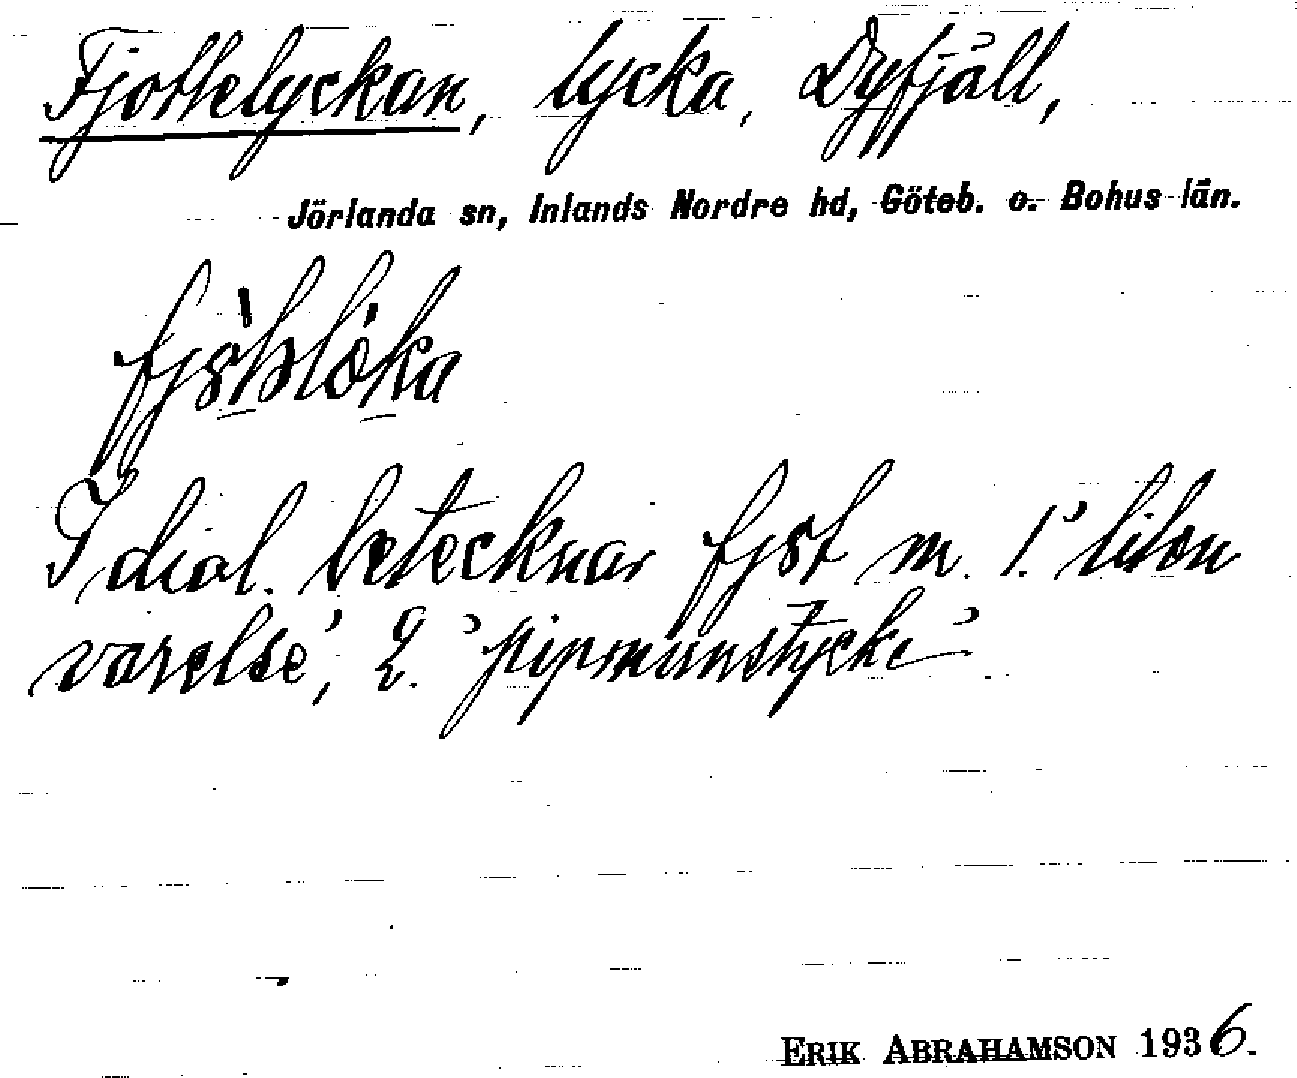 Fjottelyckan, lycka, Dyfjäll,
Jörlanda sn, Inlands Nordre hd, Göteb. o. Bohus län.
I dial. betecknar fjɔt m. 1. 'liten
varelse', 2. 'pipmunstycke'.
ERIK ABRAHAMSON 1936.